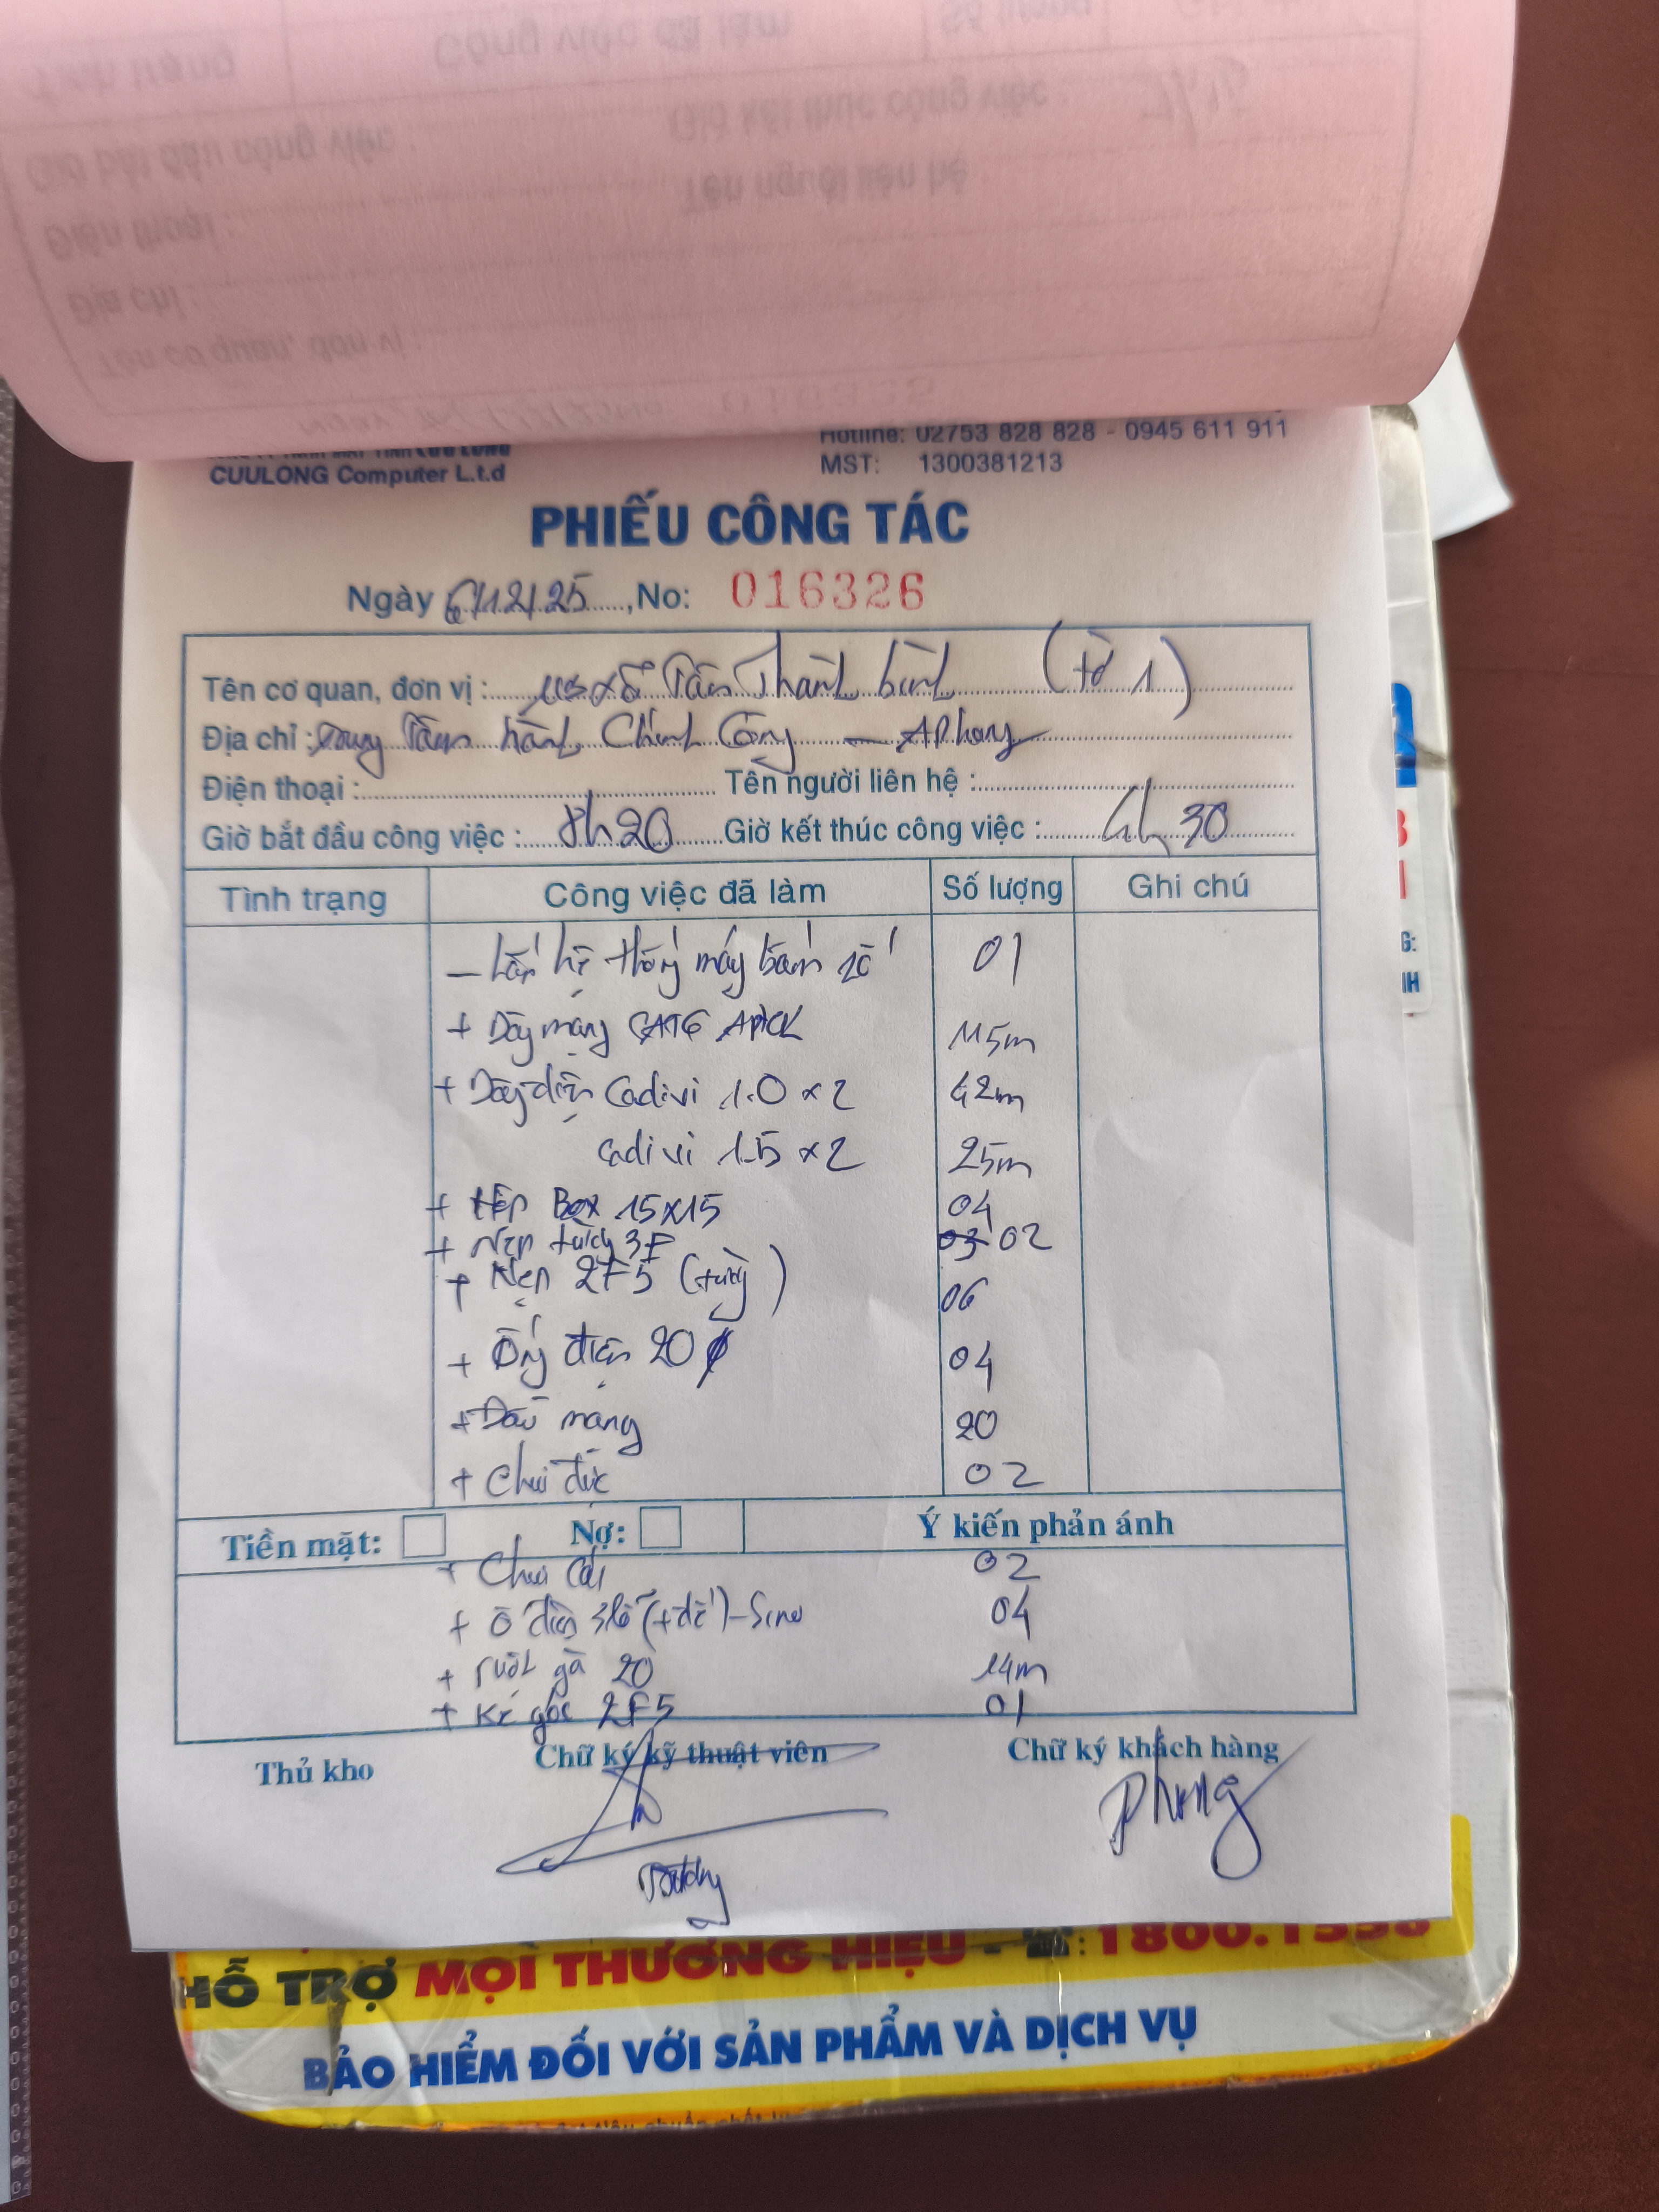 Hotline: 02753 828 828 - 0945 611 911
CUULONG Computer L.t.d
MST: 1300381213
PHIẾU CÔNG TÁC
Ngày 6/12/25, No: 016326
Tên cơ quan, đơn vị : xã Tân Thành bình (tờ 1)
Địa chỉ : Trung Tâm hành Chính Công - A Phong
Điện thoại : Tên người liên hệ :
Giờ bắt đầu công việc : 8h20 Giờ kết thúc công việc : 4h30
Tình trạng Công việc đã làm Số lượng Ghi chú
- Lắp hệ thống máy bấm số 01
+ Dây mạng CAT6 APTCK 115m
+ Dây điện Cadivi 1.0 x 2 42m
cadivi 1.5 x 2 25m
+ Hộp Box 15x15 04
+ Nẹp tường 3F 03 02
+ Nẹp 2F5 (tường) 06
+ Ống điện 20 04
+ Đầu mạng 20
+ Chui đực 02
Tiền mặt: Nợ: Ý kiến phản ánh
+ Chui cái 02
+ Ổ điện 3 lỗ (+đế) - Sino 04
+ ruột gà 20 14m
+ Ke góc 2F5 01
Thủ kho Chữ ký kỹ thuật viên Chữ ký khách hàng
Phong
HỖ TRỢ MỌI THƯƠNG HIỆU - ☎: 1800.1558
BẢO HIỂM ĐỐI VỚI SẢN PHẨM VÀ DỊCH VỤ